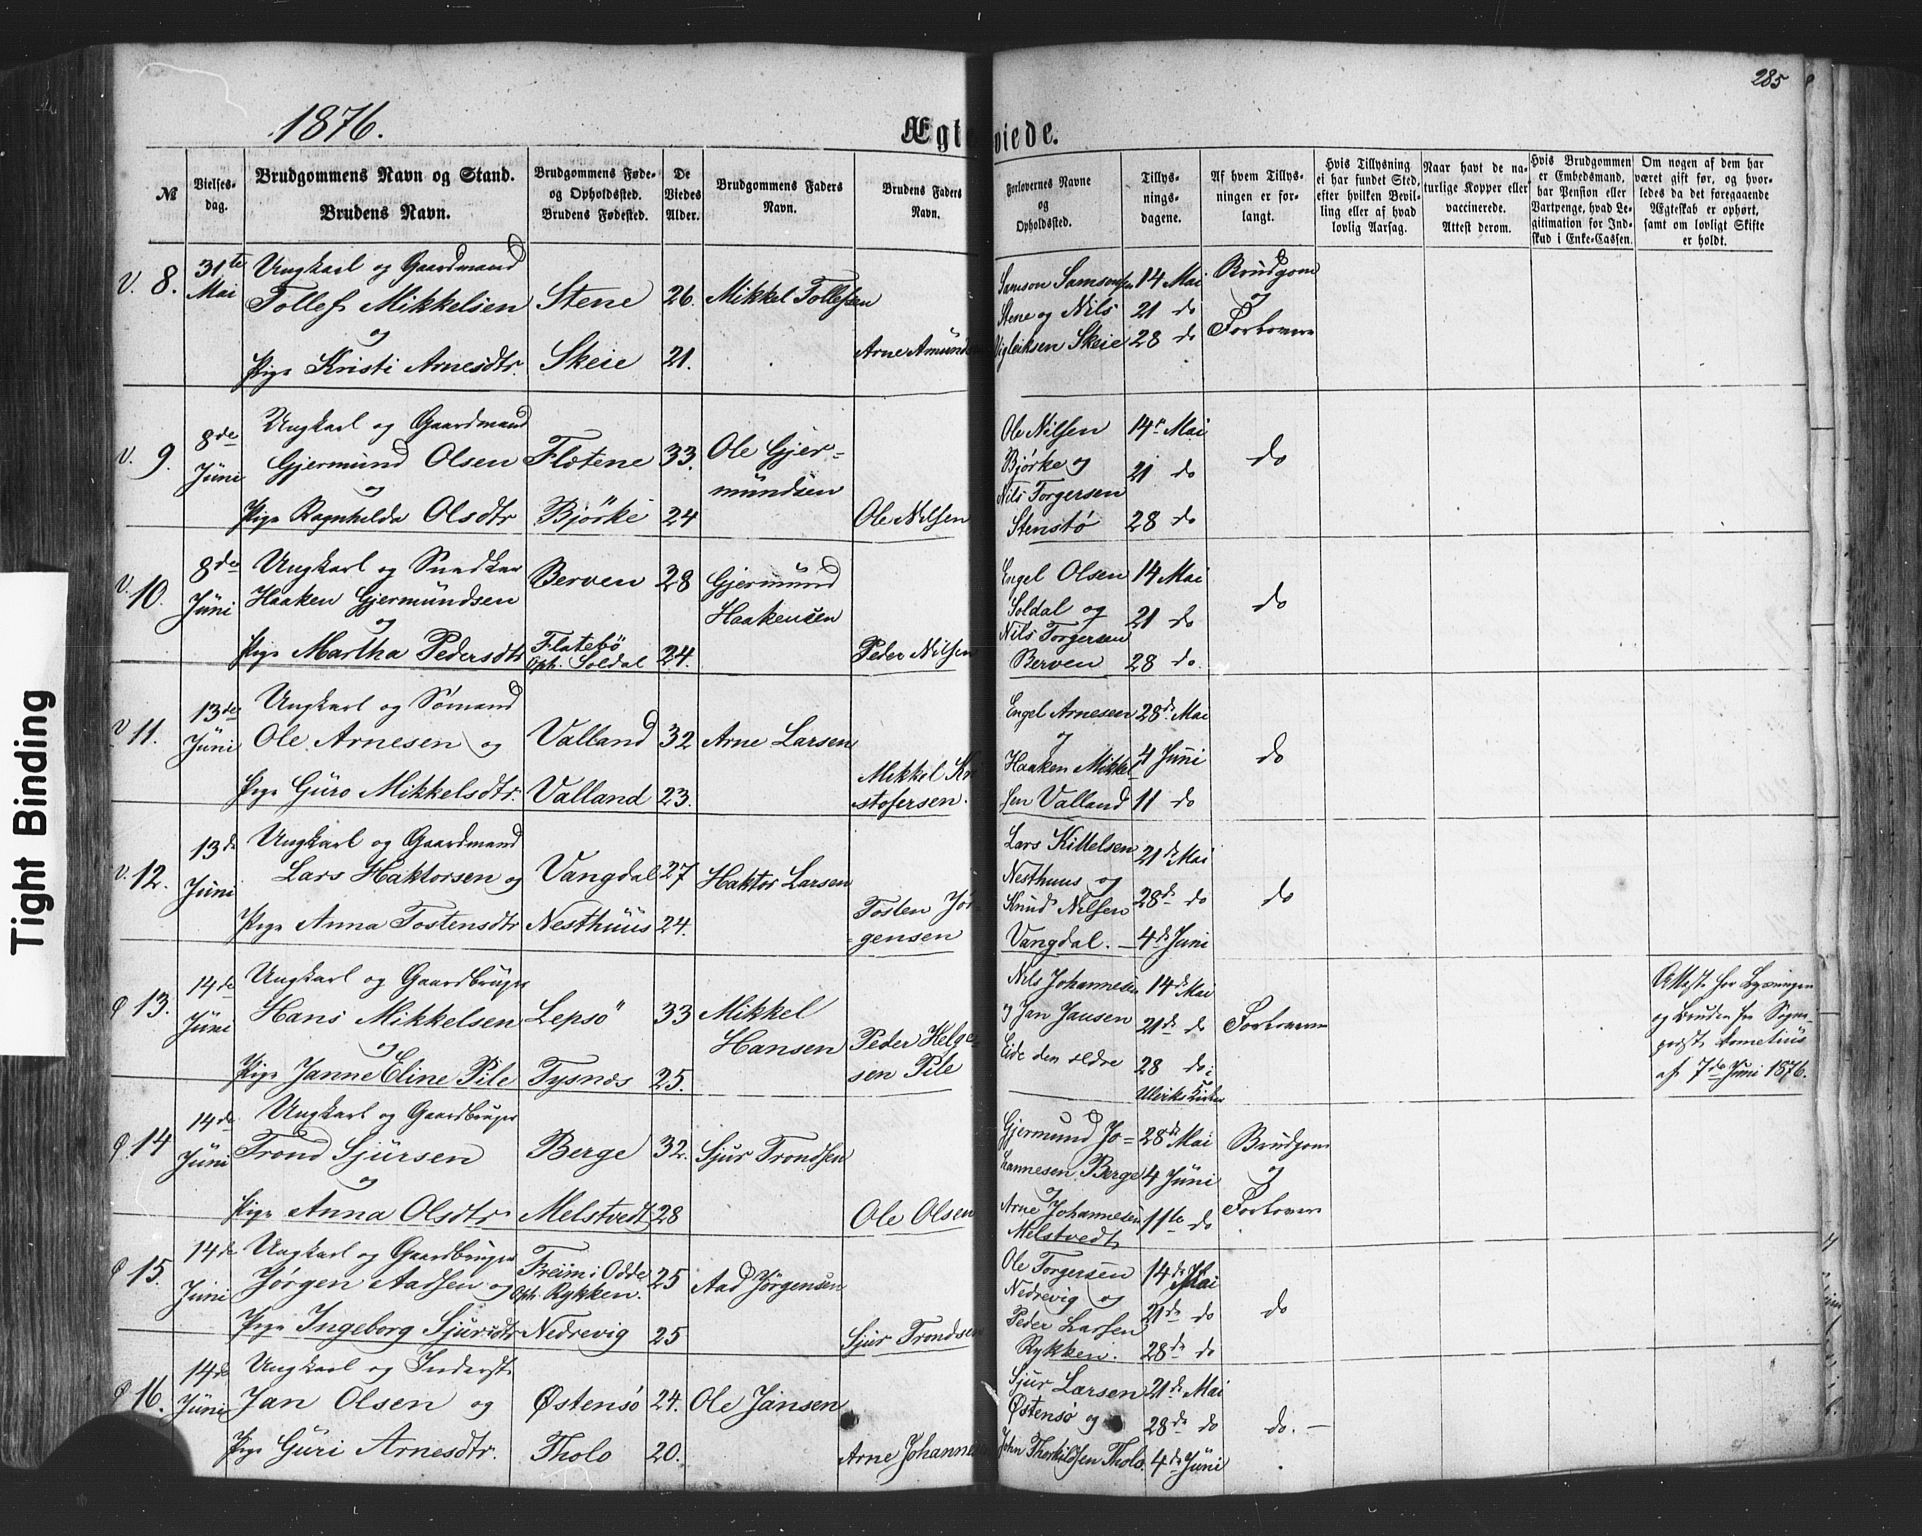 285
1876.
Ægteviede.
№
Vielses-
dag.
Brudgommens Navn og Stand.
Brudens Navn.
Brudgommens Føde-
og Opholdssted.
Brudens Fødested.
De
Viedes
Alder.
Brudgommens Faders
Navn.
Brudens Faders
Navn.
Forlovernes Navne
og
Opholdssted.
Tillys-
nings-
dagene.
Af hvem Tillys-
ningen er for-
langt.
Hvis Tillysning
ei har fundet Sted,
efter hvilken Bevil-
ling eller af hvad
lovlig Aarsag.
Naar havt de na-
turlige Kopper eller
vaccinerede.
Attest derom.
Hvis Brudgommen
er Embedsmand,
har Pension eller
Vartpenge, hvad Le-
gitimation for Ind-
skud i Enke-Cassen.
Om nogen af dem har
været gift før, og hvor-
ledes da det foregaaende
Ægteskab er ophørt,
samt om lovligt Skifte
er holdt.
V. 8.
31te
Mai
Ungkarl og Gaardmand
Tollef Mikkelsen
og
Pige Kristi Arnesdtr.
Stene
Skeie
26.
21.
Mikkel Tollefsen
Arne Amunds
Samson Samsonsen
Stene og Nils
Vigleiksen Skeie
14 Mai
21 do
28 do
Brudgom
og
Forlovere
V. 9.
8de
Juni
Ungkarl og Gaardmand
Gjermund Olsen
og
Pige Ragnhilda Olsdtr
Flotene
Bjørke
33.
24
Ole Gjer-
mundsen
Ole Nilsen
Ole Nilsen
Bjørke og
Nils Torgersen
Stenstø
14 Mai
21 do
28 do
do
V. 10.
8de
Juni
Ungkarl og Snedker
Haaken Gjermundsen
og
Pige Martha Pedersdtr
Berven
Flatebø
Oph. Soldal
28
24.
Gjermund
Haakensen
Peder Nilsen
Engel Olsen
Soldal og
Nils Torgersen
Berven
14 Mai
21 do
28 do.
do
V 11.
13de
Juni
Ungkarl og Sømand
Ole Arnesen og
Pige Guro Mikkelsdtr.
Valland
Valland
32
23.
Arne Larsen
Mikkel Kri
stofersen.
Engel Arnesen
og
Haaken Mikkel
sen Valland
28de Mai
4 Juni
11 do
do
V. 12.
13de
Juni
Ungkarl og Gaardmand
Lars Haktorsen og
Pige Anna Tostensdtr
Vangdal
Nesthuus
27
24.
Haktor Larsen
Tosten Jør-
gensen
Lars Kittelsen
Nesthuus og
Knud Nilsen
Vangdal.
21de Mai
28de do
4de Juni
do
Ø 13.
14de
Juni
Ungkarl og Gaardbruger
Hans Mikkelsen
og
Pige Janne Eline Pile
Lepsø
Tysnæs
33
25.
Mikkel
Hansen
Peder Helge-
sen Pile
Nils Johannesen
og Jan Jansen
Eide den ældre
14de Mai
21de do
28 do i
Ulviks Kirke
Forlovere
Attest for Lysningen
og Bruden fra Sogne-
præst
af 7de Juni 1876.
Ø 14
14de
Juni
Ungkarl og Gaardbruger
Trond Sjursen
og
Pige Anna Olsdtr
Berge
Melstvedt
32.
28
Sjur Trondsen
Ole Olsen
Gjermund Jo-
hannesen Berge
og
Arne Johannesen
Melstvedt
28de Mai
4 Juni
11te do
Brudgom
og
Forlovere
Ø 15.
14de
Juni
Ungkarl og Gaardbruger
Jørgen Aadsen og
Pige Ingeborg Sjursdtr
Freim i Odde
Oph. Rykken.
Nedrevig
25
25
Aad Jørgensen
Sjur Trondsen
Ole Torgersen
Nedrevig og
Peder Larsen
Rykken.
14de Mai
21de do
28de do
do
Ø 16.
14de
Juni
Ungkarl og Inderst
Jan Olsen og
Pige Guri Arnesdtr.
Østensø
Tholo
24.
20.
Ole Jansen
Arne Johannes
Sjur Larsen
Østensø og
John Thorkildsen Tholo.
21de Mai
28de do
4de Juni
do.
Tight Binding